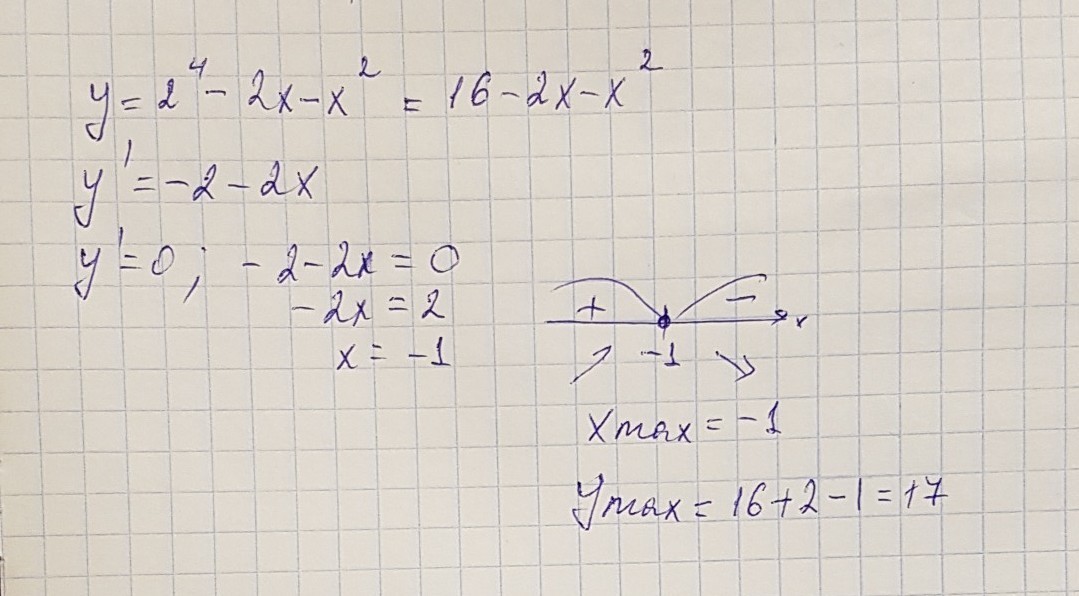 y = 2⁴ - 2x - x² = 16 - 2x - x²
y' = -2 - 2x
y' = 0; -2 - 2x = 0
-2x = 2
x = -1
+ -
x
-1
xmax = -1
ymax = 16 + 2 - 1 = 17